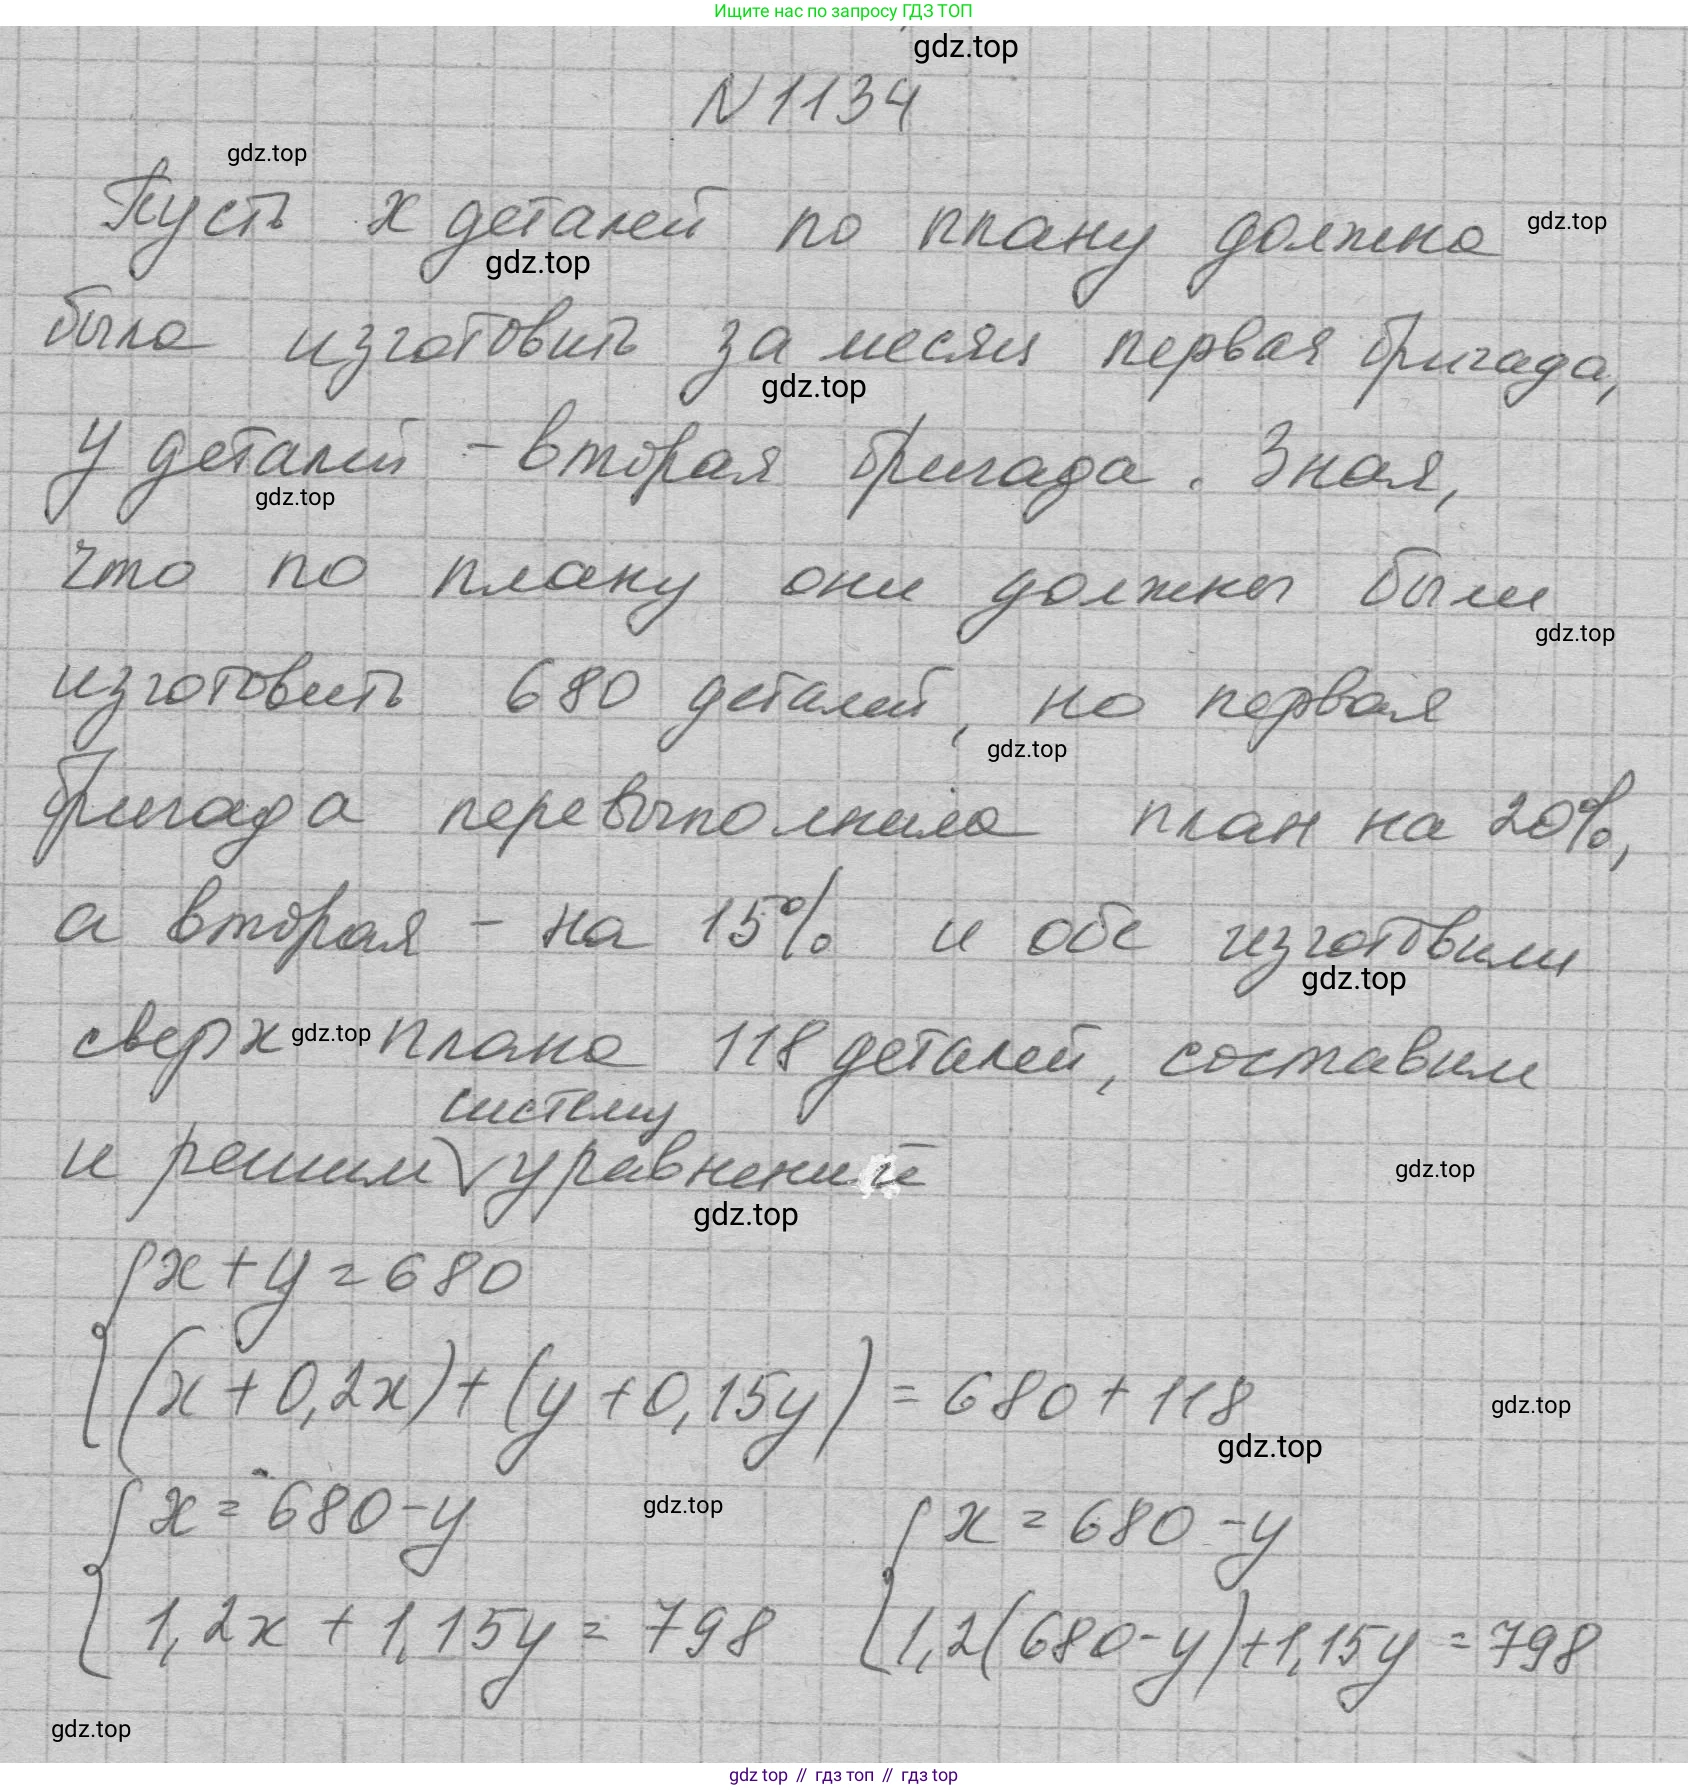 Ищите нас по запросу ГДЗ ТОП
gdz.top
N 1134
gdz.top
Пусть x деталей по плану должна
gdz.top
gdz.top
была изготовить за месяц первая бригада,
gdz.top
y деталей - вторая бригада. Зная,
gdz.top
что по плану они должны были
gdz.top
изготовить 680 деталей, но первая
gdz.top
бригада перевыполнила план на 20%,
а вторая - на 15% и обе изготовили
gdz.top
сверх gdz.top плана 118 деталей, составим
систему
и решим V уравнений
gdz.top
gdz.top
{ x + y = 680
(x + 0,2x) + (y + 0,15y) = 680 + 118
gdz.top
gdz.top
{ x = 680 - y gdz.top { x = 680 - y
1,2x + 1,15y = 798 1,2(680 - y) + 1,15y = 798
gdz.top
gdz top // гдз топ // гдз top